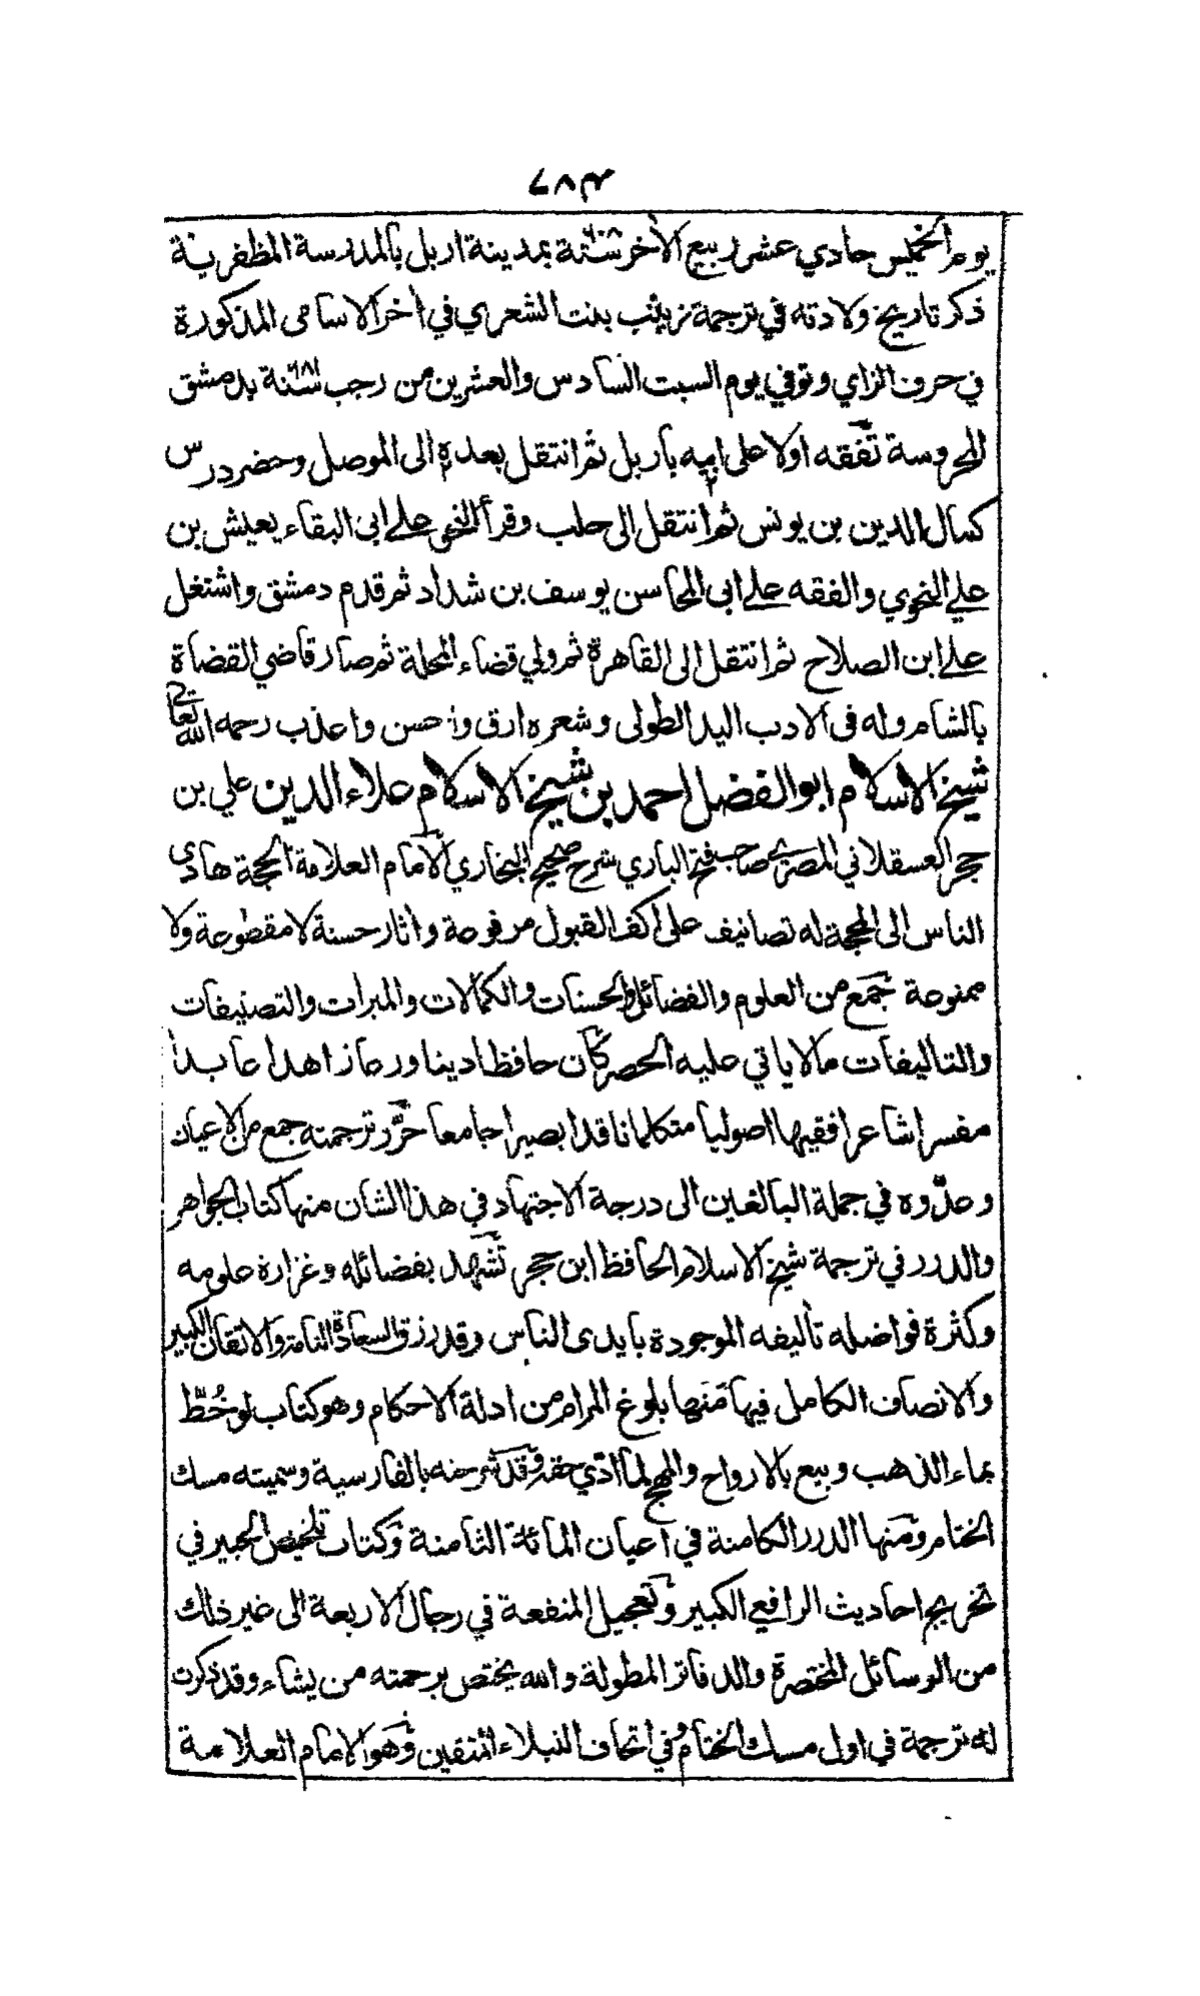 ٧٨٣
يوم الخميس حادي عشر ربيع الآخر سنة ٦٠٨ بمدينة اربل بالمدرسة المظفرية
ذكر تاريخ ولادته في ترجمة زينب بنت الشعري في آخر الاسامى المذكورة
في حرف الزاي وتوفي يوم السبت السادس والعشرين من رجب سنة ٦٨١ بدمشق
المحروسة تفقه اولا على ابيه باربل ثم انتقل بعده الى الموصل وحضر درس
كمال الدين بن يونس ثم انتقل الى حلب وقرأ النحو على ابى البقاء يعيش بن
علي النحوي والفقه على ابى المحاسن يوسف بن شداد ثم قدم دمشق واشتغل
على ابن الصلاح ثم انتقل الى القاهرة ثم ولي قضاء المحلة ثم صار قاضي القضاة
بالشام وله فى الادب اليد الطولى وشعره ارق واحسن واعذب رحمه الله تعالى
شيخ الاسلام ابو الفضل احمد بن شيخ الاسلام علاء الدين علي بن
حجر العسقلاني المصري صاحب فتح الباري شرح صحيح البخاري الامام العلامة الحجة هادى
الناس الى المحجة له تصانيف على اكف القبول مرفوعة واثار حسنة لا مقطوعة ولا
ممنوعة جمع من العلوم والفضائل والحسنات والكمالات والمبرات والتصنيفات
والتاليفات مالا ياتي عليه الحصر كان حافظا دينا ورعا زاهدا عابدا
مفسرا شاعرا فقيها اصوليا متكلما ناقدا بصيرا جامعا حرّر ترجمته جمع من الاعيان
وعدّوه في جملة البالغين الى درجة الاجتهاد في هذا الشان منها كتاب الجواهر
والدرر في ترجمة شيخ الاسلام الحافظ ابن حجر تشهد بفضائله وغزارة علومه
وكثرة فواضله تأليفه الموجودة بايدى الناس وقد رزق السعادة التامة والاتقان الكبير
والانصاف الكامل فيها منها بلوغ المرام من ادلة الاحكام وهو كتاب لو خُطّ
بماء الذهب وبيع بالارواح والمهج لما ادّي حقه وقد شرحته بالفارسية وسميته مسك
الختام ومنها الدرر الكامنة في اعيان المائة الثامنة وكتاب تلخيص الحبير في
تخريج احاديث الرافعي الكبير وتعجيل المنفعة في رجال الاربعة الى غير ذلك
من الرسائل المختصرة والدفاتر المطولة والله يختص برحمته من يشاء وقد ذكرت
له ترجمة في اول مسك الختام وفي اتحاف النبلاء المتقين وهو الامام العلامة